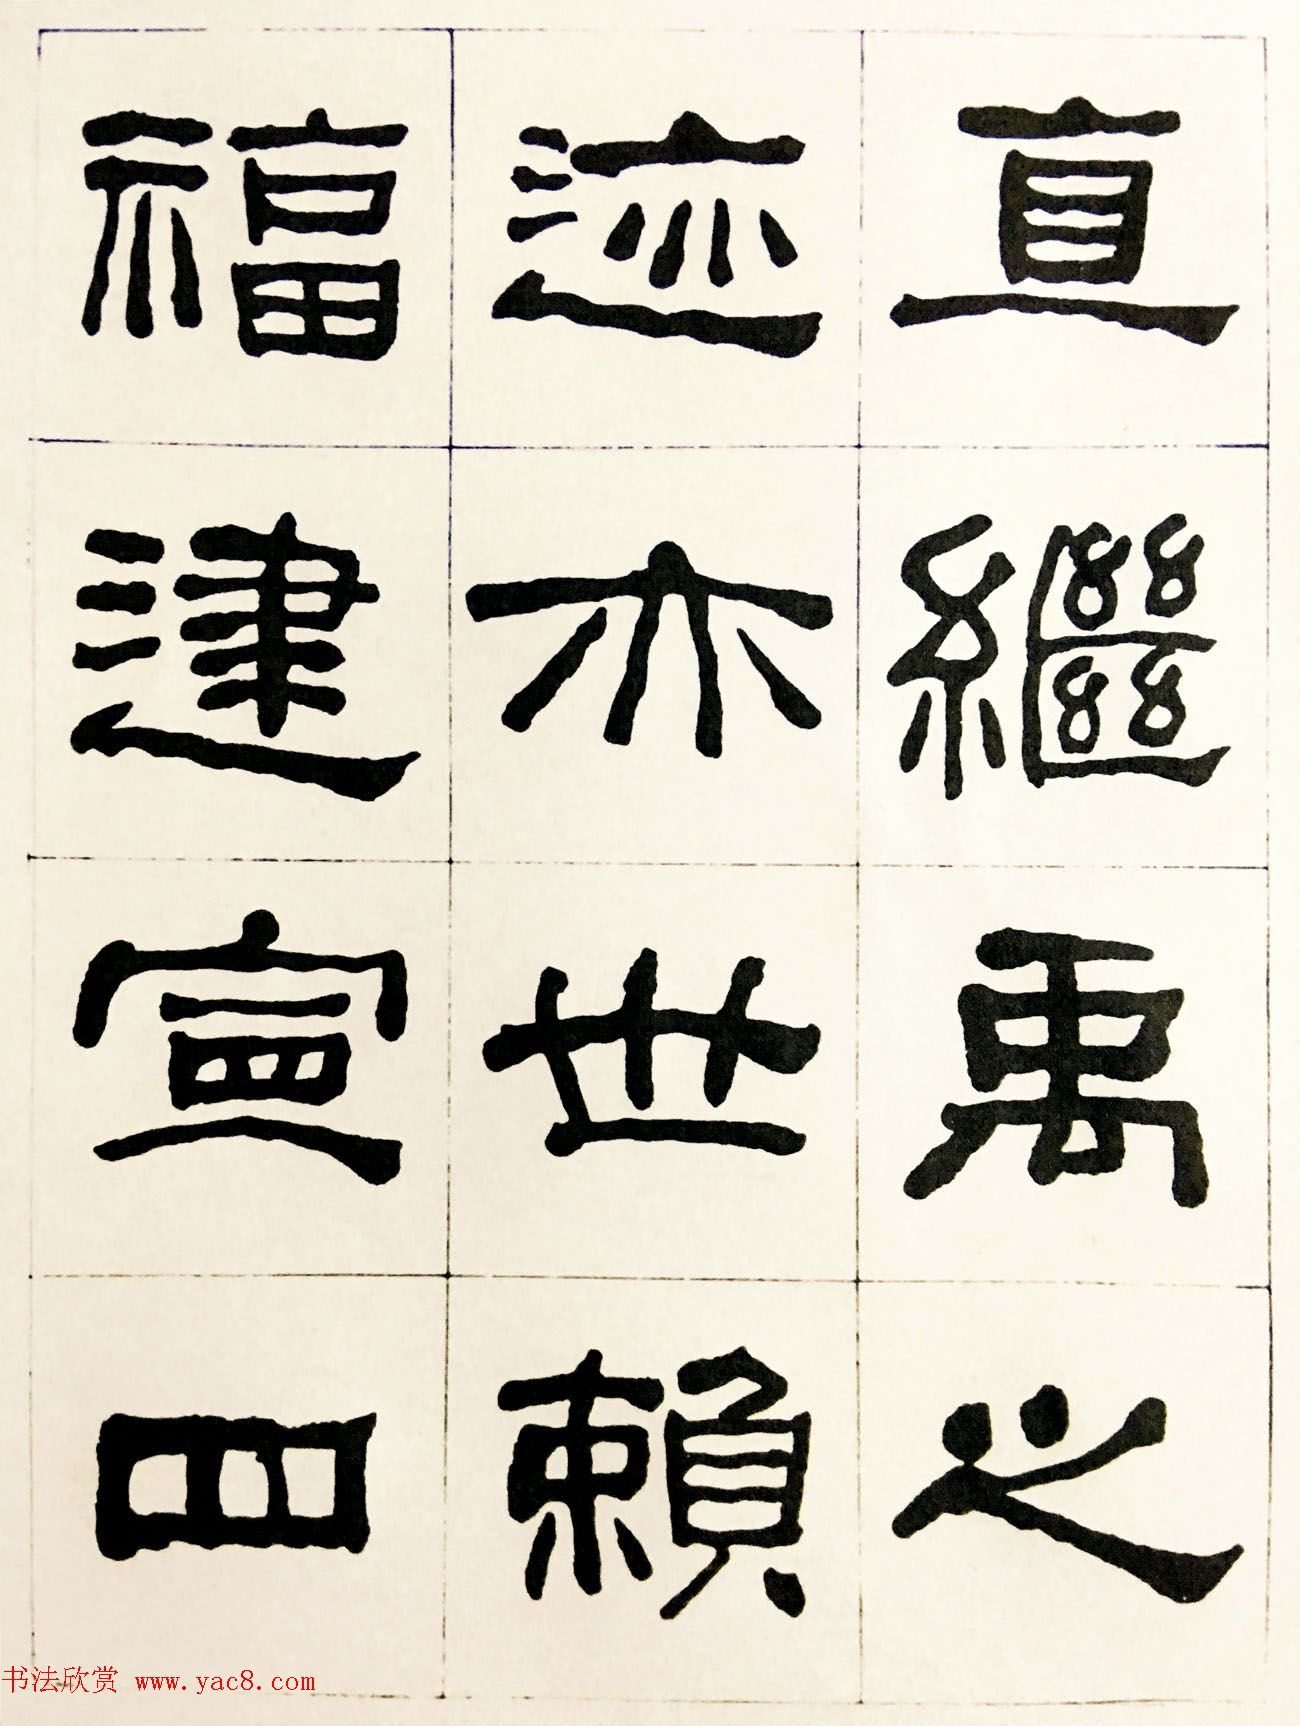 直繼禹之
迹亦世賴
福建宣四
书法欣赏 www.yac8.com